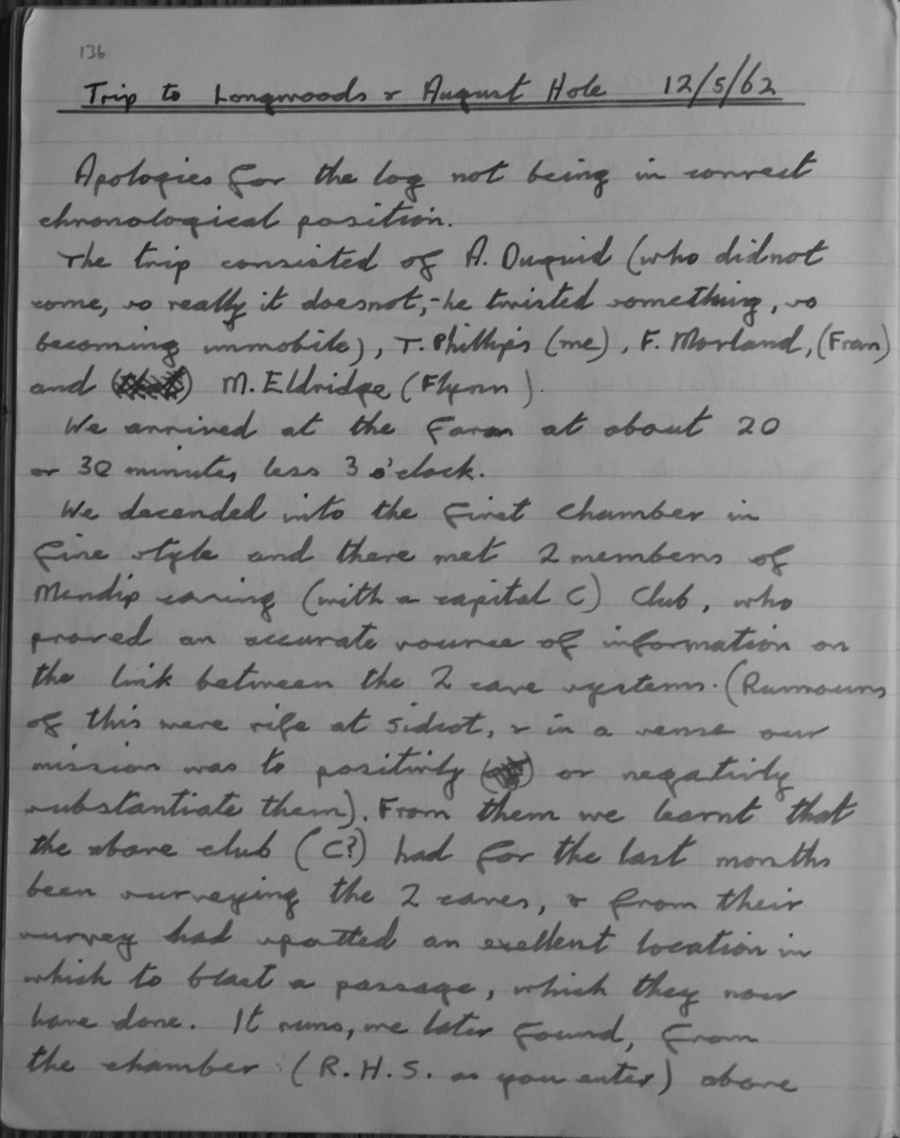 136
Trip to Longwoods & August Hole 12/5/62
Apologies for the log not being in correct
chronological position.
The trip consisted of A. Duguid (who did not
come, so really it doesnot, - he twisted something, so
becoming immobile), T. Phillips (me), F. Morland, (Fran)
and M. Eldridge (Flynn).
We arrived at the farm at about 20
or 30 minutes less 3 o'clock.
We decended into the first chamber in
fine style and there met 2 members of
Mendip caving (with a capital C) Club, who
proved an accurate source of information on
the link between the 2 cave systems. (Rumours
of this were rife at Sidcot, & in a sense our
mission was to positivly or negativly
substantiate them). From them we learnt that
the above club (C?) had for the last months
been surveying the 2 caves, & from their
survey had spotted an exellent location in
which to blast a passage, which they now
have done. It runs, we later found, from
the chamber (R.H.S. as you enter) above